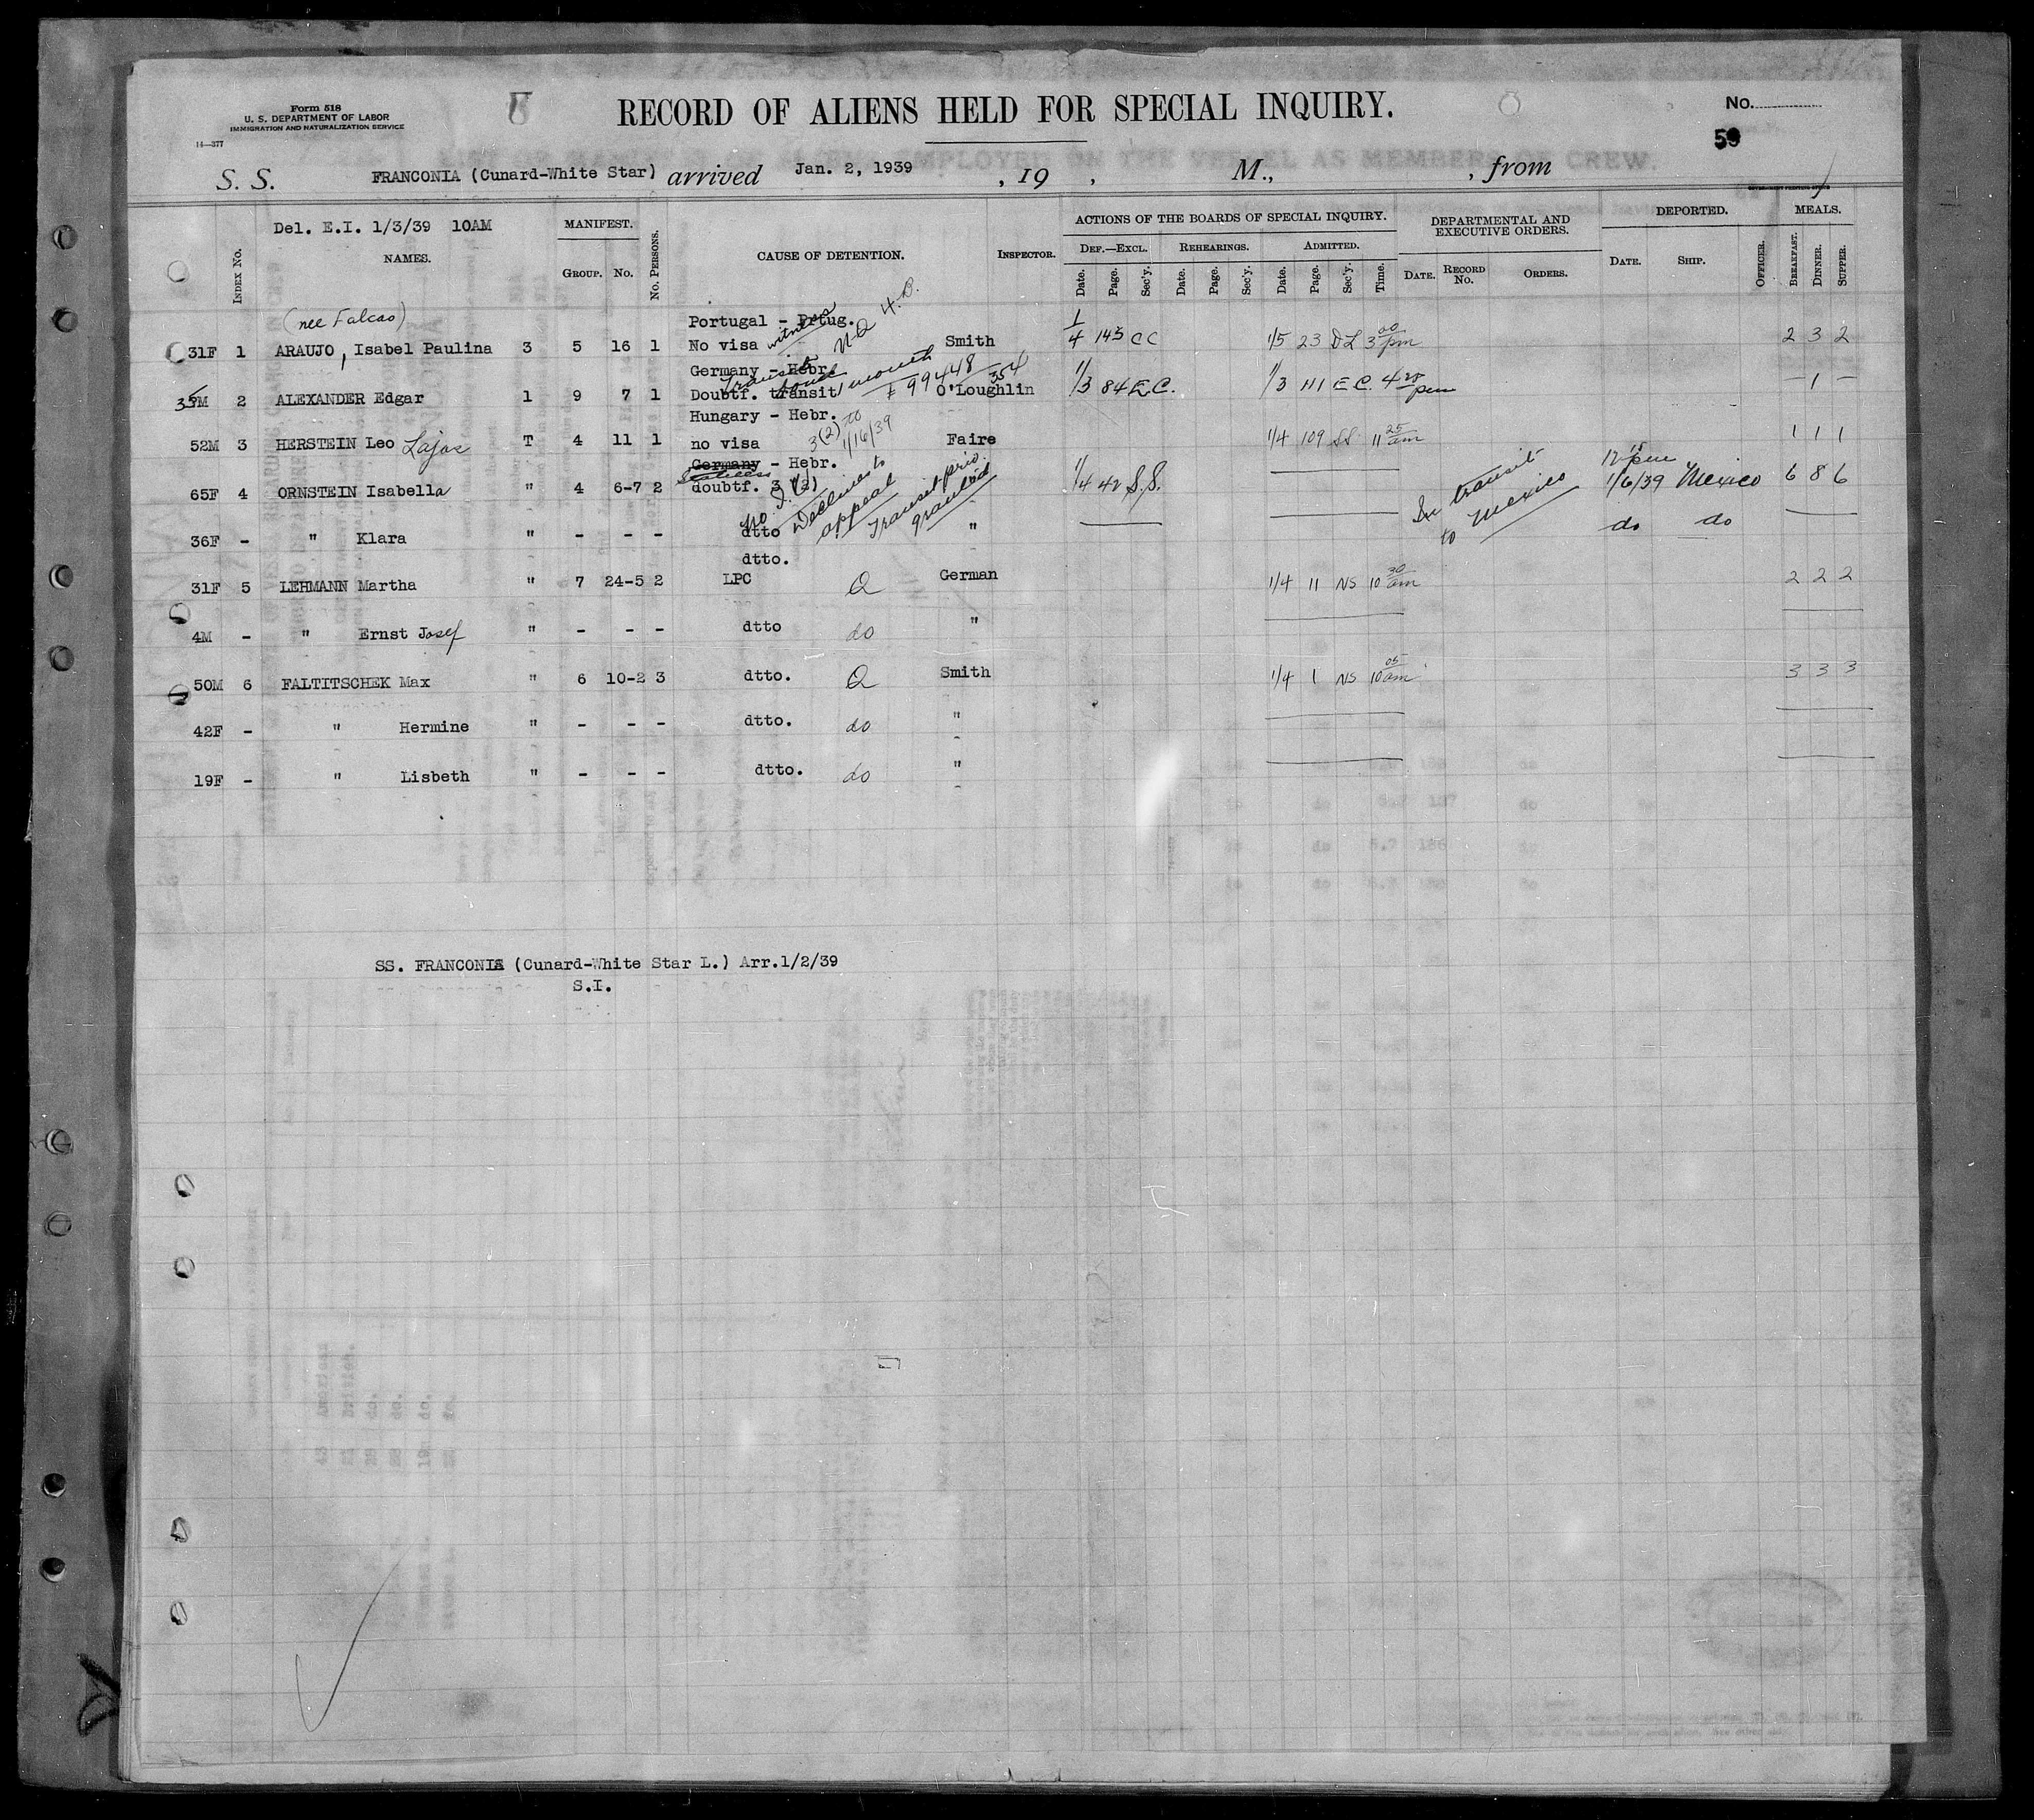 Form 518
U. S. DEPARTMENT OF LABOR
IMMIGRATION AND NATURALIZATION SERVICE
14—377
RECORD OF ALIENS HELD FOR SPECIAL INQUIRY.
No.
59
S. S. FRANCONIA (Cunard-White Star) arrived Jan. 2, 1939 , 19 , M., , from
Del. E.I. 1/3/39 10AM
INDEX No. NAMES. MANIFEST. GROUP. No. No. PERSONS. CAUSE OF DETENTION. INSPECTOR. ACTIONS OF THE BOARDS OF SPECIAL INQUIRY. DEPARTMENTAL AND EXECUTIVE ORDERS. DEPORTED. MEALS.
DEF.—EXCL. REHEARINGS. ADMITTED.
Date. Page. Sec'y. Date. Page. Sec'y. Date. Page. Sec'y. Time. DATE. RECORD No. ORDERS. DATE. SHIP. OFFICER. BREAKFAST. DINNER. SUPPER.
(nee Falcao) Portugal - Prtug. witness
31F 1 ARAUJO, Isabel Paulina 3 5 16 1 No visa Smith 1/4 143 CC 1/5 23 DL 3 00 pm 2 3 2
Germany - Hebr. transit bond 1 month # 99448 354
35M 2 ALEXANDER Edgar 1 9 7 1 Doubtf. transit O'Loughlin 1/3 84 E.C. 1/3 111 E C. 4 28 pm — 1 —
Hungary - Hebr. 3(2) to 1/16/39
52M 3 HERSTEIN Leo Lajos T 4 11 1 no visa Faire 1/4 109 SS 11 25 am 1 1 1
Germany - Hebr. Stateless
65F 4 ORNSTEIN Isabella " 4 6-7 2 doubtf. 3 (2) 1/4 42 S.S. 12 15 pm 1/6/39 Mexico 6 8 6
Declines to appeal Transit priv. granted
In transit to Mexico
36F - " Klara " - - - dtto " do do
dtto.
31F 5 LEHMANN Martha " 7 24-5 2 LPC Q German 1/4 11 NS 10 30 am 2 2 2
4M - " Ernst Josef " - - - dtto do "
50M 6 FALTITSCHEK Max " 6 10-2 3 dtto. Q Smith 1/4 1 NS 10 05 am 3 3 3
42F - " Hermine " - - - dtto. do "
19F - " Lisbeth " - - - dtto. do "
SS. FRANCONIA (Cunard-White Star L.) Arr.1/2/39
S.I.